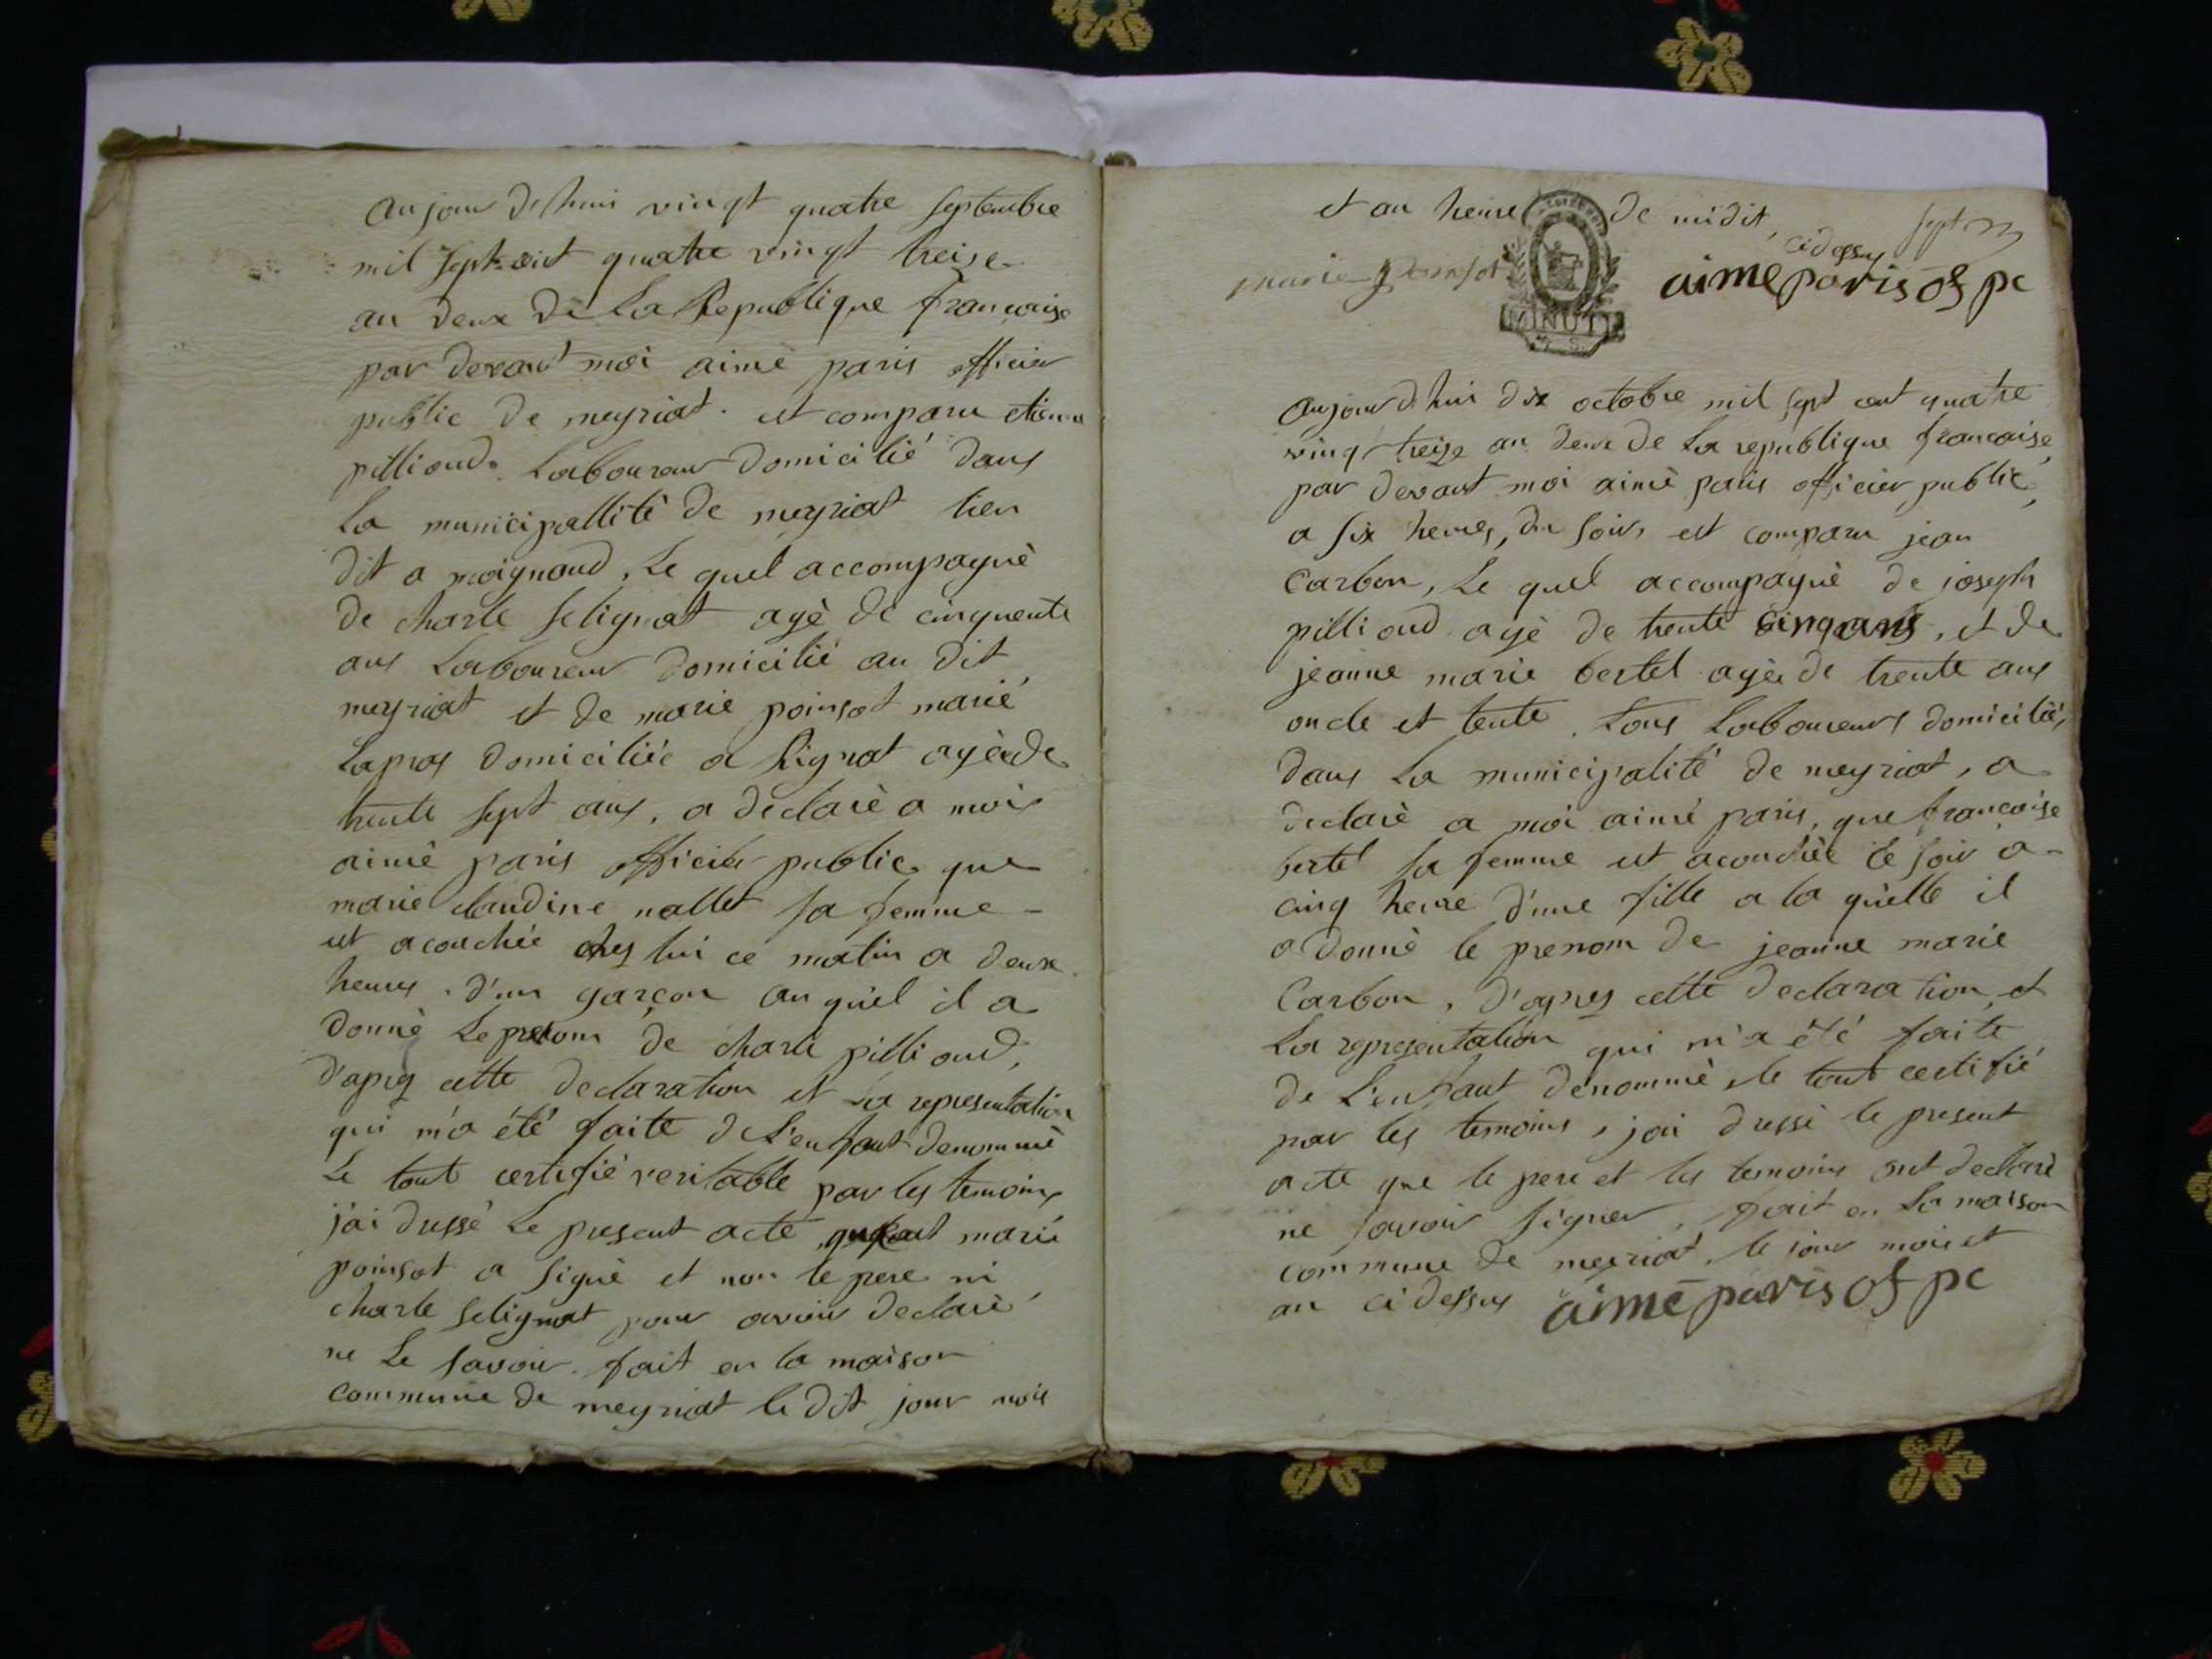 aujour dehui vingt quatre septembre
mil sept cent quatre vingt treise
an deux de La Republique francoise
par devant moi aimé paris officier
public de meyriat. est comparu etienne
pillioud. Laboureur domicilié dans
La municipallité de meyriat lieu
dit a moignoud, Le quel accompagné
de charle selignat agé de cinquente
ans Laboureur domicilié au dit
meyriat et de marie poinsot marié
Lapras domiciliée a Lignat agée de
trente sept ans, a declaré a moi
aimé paris officier public que
marie claudine nallet sa femme
est acouchée ches lui ce matin a deux
heures d'un garçon au quel il a
donné Le prenom de charle pillioud,
d'apres cette declaration et La representation
qui m'a été faite de L'enfant denommé
Le tout certifié veritable par les temoins
j'ai dressé Le present acte marie
poinsot a signé et non le pere ni
charle selignat pour avoir declaré
ne Le savoir. fait en la maison
commune de meyriat le dit jour mois
et an heure de midit,
sept
cidessus
marie poinsot aime paris of pc
MINUTE
aujourd'hui dix octobre mil sept cent quatre
vingt treize an deux de La republique francaise,
par devant moi aimé paris officier public,
a six heures, du soir, est comparu jean
Carbon, Le quel accompagné de joseph
pillioud agé de trente cinq ans, et de
jeanne marie bertel agée de trente ans
oncle et tente. tous Laboureurs domiciliés,
dans La municipalité de meyriat, a
declaré a moi aimé paris, que francoise
bertel sa femme est acouchée ce soir a
cinq heure d'une fille a la quelle il
a donné le prenom de jeanne marie
Carbon, d'apres cette declaration et
La representation qui m'a été faite
de L'enfant denommé, le tout certifié
par les temoins, j'ai dressé le present
acte que le pere et les temoins ont declaré
ne savoir signer, fait en La maison
commune de meyriat, le jour mois et
an ci dessus aimé paris of pc